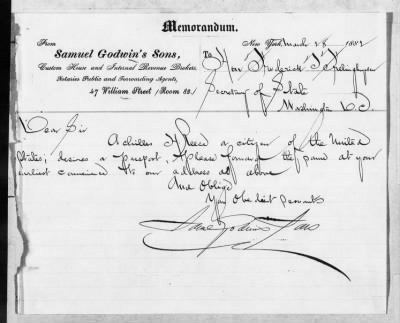 Memorandum.
From
Samuel Godwin's Sons,
Custom House and Internal Revenue Brokers,
Notaries Public and Forwarding Agents,
47 William Street (Room 83.)
New York March 28 1882
To Hon Frederick T. Frelinghuysen
Secretary of State
Washington D.C
Dear Sir
Achilles a citizen of the United
States, desires a passport, please forward the same at your
earliest convenience to our address as above
And Oblige
Your Obedient Servants
Saml Godwin's Sons